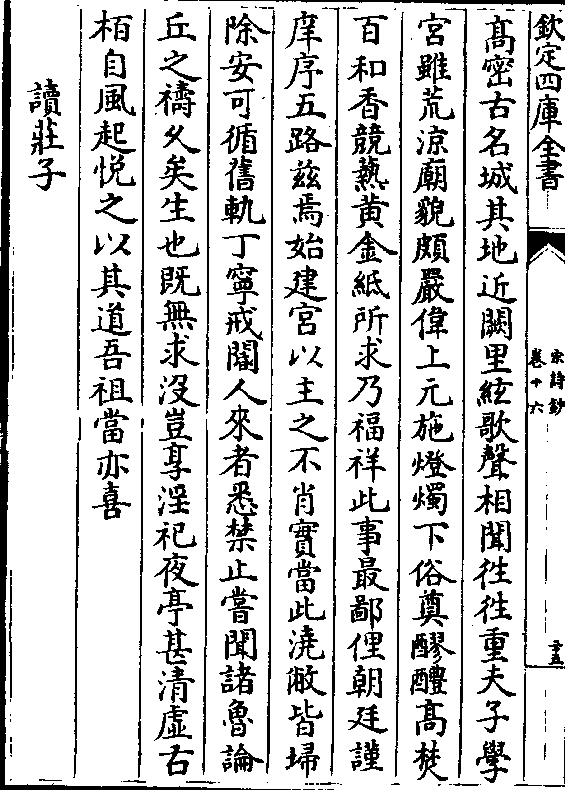 欽定四庫全書
宋詩鈔
卷十六
高密古名城其地近闕里絃歌聲相聞徃徃重夫子學
宮雖荒涼廟貌頗嚴偉上元施燈燭下俗奠醪醴髙焚
百和香競爇黄金紙所求乃福祥此事最鄙俚朝廷謹
庠序五路兹焉始建宮以主之不肖實當此澆敝皆埽
除安可循舊軌丁寧戒閽人來者悉禁止嘗聞諸魯論
丘之禱久矣生也既無求沒豈享淫祀夜亭甚清虛古
栢自風起悅之以其道吾祖當亦喜
讀莊子